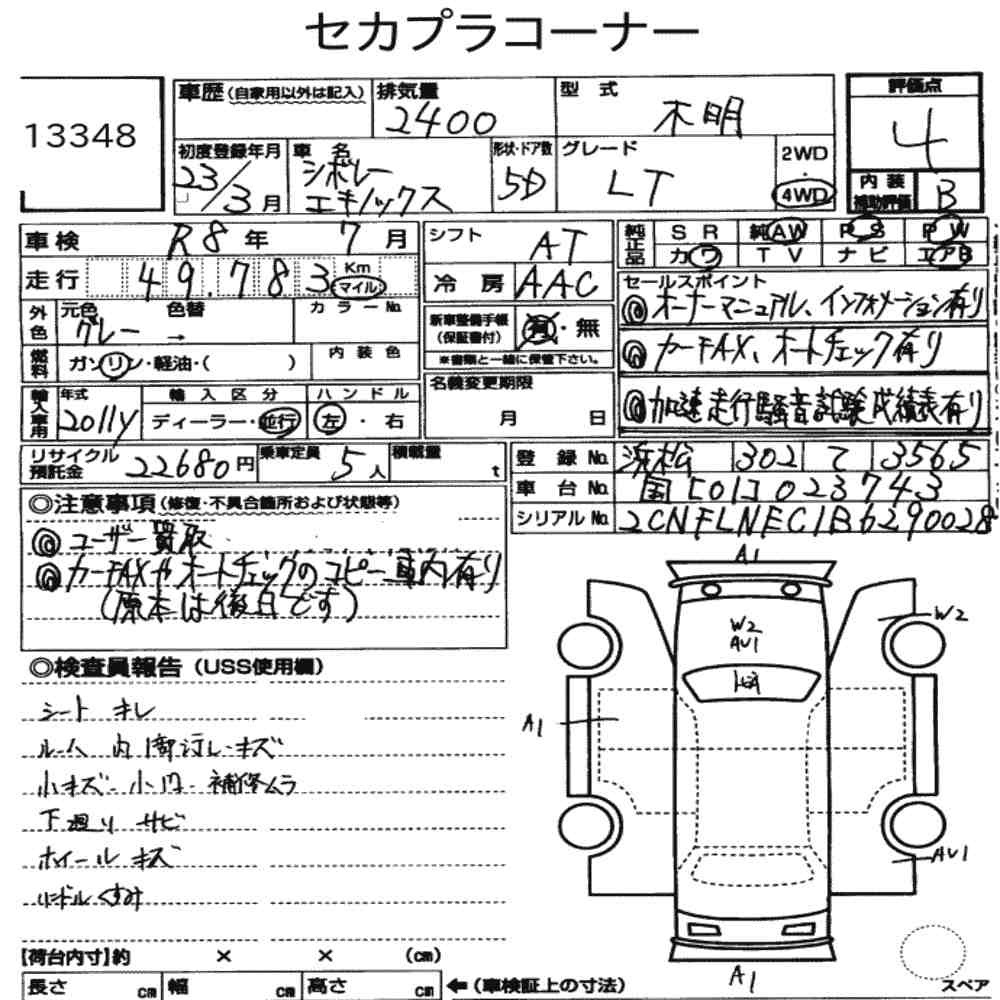 セカプラコーナー
13348
車歴(自家用以外は記入)
排気量 2400
型式 不明
評価点 4
初度登録年月 23/3月
車名 シボレー エキノックス
形状・ドア数 5D
グレード LT
2WD
4WD
内装補助評価 B
車検 R8年 7月
シフト AT
純正品 SR 純AW PS PW
カワ TV ナビ エアB
走行 49,783 Km マイル
冷房 AAC
セールスポイント
◎オーナーマニュアル、インフォメーション有り
◎カーFAX、オートチェック有り
◎加速走行騒音試験成績表有り
外色 元色 グレー → 色替 カラーNo.
新車整備手帳(保証書付) 有・無
※書類と一緒に保管下さい。
燃料 ガソリン・軽油・( ) 内装色
名義変更期限 月 日
輸入車用 年式 2011y
輸入区分 ディーラー・並行
ハンドル 左・右
リサイクル預託金 22680円
乗車定員 5人
積載量 t
登録No. 浜松 302 て 3565
車台No. 国[01]023743
シリアルNo. 2CNFLNEC1B6290028
◎注意事項(修復・不具合箇所および状態等)
◎ユーザー買取
◎カーFAXやオートチェックのコピー車内有り
(原本は後日です)
◎検査員報告(USS使用欄)
シート キレ
ルーム内 1部汚レ・キズ
小キズ・小凹・補修ムラ
下廻り サビ
ホイール キズ
ハンドルくすみ
A1
W2
AU1
W2
A1
AU1
A1
【荷台内寸】約 × × (cm)
長さ cm 幅 cm 高さ cm ←(車検証上の寸法)
スペア